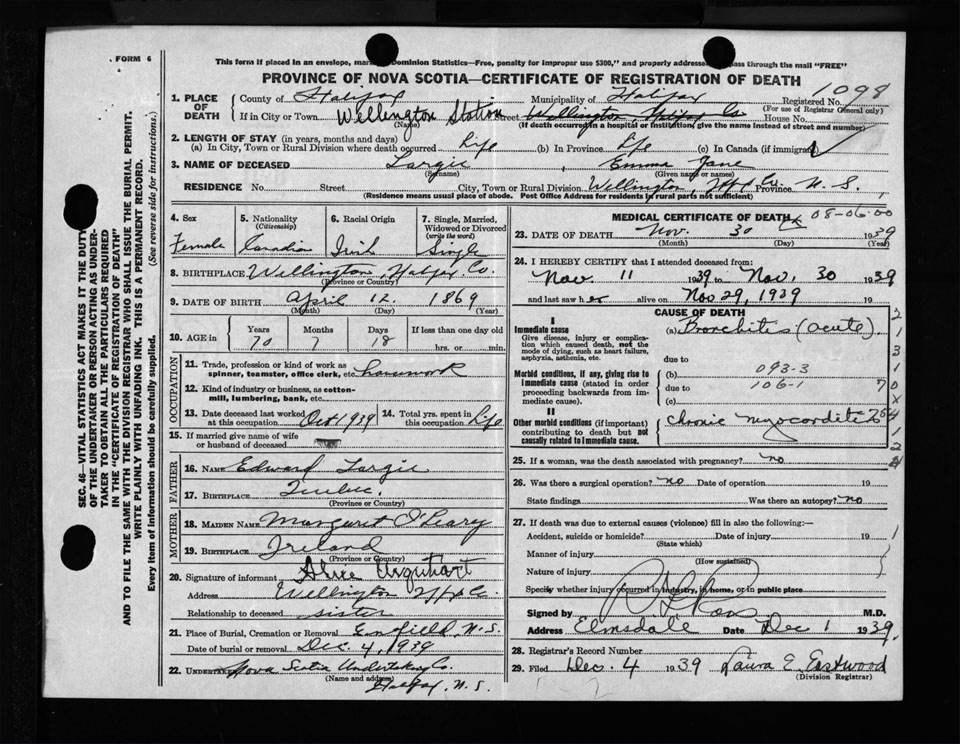 FORM 6
This form if placed in an envelope, Dominion Statistics—Free, penalty for improper use $300," and properly addressed pass through the mail "FREE"
PROVINCE OF NOVA SCOTIA—CERTIFICATE OF REGISTRATION OF DEATH
1098
1. PLACE OF DEATH County of Halifax Municipality of Halifax Registered No.
(For use of Registrar General only)
If in City or Town Wellington Station Street Wellington, Halifax Co House No.
(Name) (If death occurred in a hospital or institution, give the name instead of street and number)
2. LENGTH OF STAY (in years, months and days)
(a) In City, Town or Rural Division where death occurred Life (b) In Province Life (c) In Canada (if immigrant)
3. NAME OF DECEASED Largie Emma Jane
(Surname) (Given name or names)
RESIDENCE No. Street City, Town or Rural Division Wellington, Hfx Co. Province N. S.
(Residence means usual place of abode. Post Office Address for residents in rural parts not sufficient)
4. Sex Female
5. Nationality (Citizenship) Canadian
6. Racial Origin Irish
7. Single, Married, Widowed or Divorced (write the word) Single
8. BIRTHPLACE Wellington, Halifax Co.
(Province or Country)
9. DATE OF BIRTH April 12, 1869
(Month) (Day) (Year)
10. AGE in Years 70 Months 7 Days 18 If less than one day old hrs. or min.
OCCUPATION
11. Trade, profession or kind of work as spinner, teamster, office clerk, etc. Housework
12. Kind of industry or business, as cotton-mill, lumbering, bank, etc.
13. Date deceased last worked at this occupation Oct 1939 14. Total yrs. spent in this occupation Life
15. If married give name of wife or husband of deceased
FATHER
16. NAME Edward Largie
17. BIRTHPLACE Quebec.
(Province or Country)
MOTHER
18. MAIDEN NAME Margaret O'Leary
19. BIRTHPLACE Ireland
(Province or Country)
20. Signature of informant Alice Urquhart
Address Wellington Hfx Co.
Relationship to deceased sister
21. Place of Burial, Cremation or Removal Enfield, N.S.
Date of burial or removal Dec. 4, 1939
22. UNDERTAKER Nova Scotia Undertaking Co.
(Name and address) Halifax, N. S.
MEDICAL CERTIFICATE OF DEATH 08-06-00
23. DATE OF DEATH Nov. 30 1939
(Month) (Day) (Year)
24. I HEREBY CERTIFY that I attended deceased from:
Nov. 11 1939 to Nov. 30 1939
and last saw her alive on Nov 29, 1939 19
CAUSE OF DEATH
I
Immediate cause (a) Bronchitis (acute).
Give disease, injury or complication which caused death, not the mode of dying, such as heart failure, asphyxia, asthenia, etc.
due to
Morbid conditions, if any, giving rise to immediate cause (stated in order proceeding backwards from immediate cause).
(b) 093-3
due to 106-1
(c)
II
Other morbid conditions (if important) contributing to death but not causally related to immediate cause.
chronic myocarditis
25. If a woman, was the death associated with pregnancy? no
26. Was there a surgical operation? no Date of operation 19
State findings Was there an autopsy? no
27. If death was due to external causes (violence) fill in also the following:—
Accident, suicide or homicide? Date of injury 19
(State which)
Manner of injury
(How sustained)
Nature of injury
Specify whether injury occurred in industry, in home, or in public place
Signed by M.D.
Address Elmsdale Date Dec 1 1939.
28. Registrar's Record Number
29. Filed Dec. 4 1939 Laura E. Eastwood
(Division Registrar)
SEC. 46—VITAL STATISTICS ACT MAKES IT THE DUTY
OF THE UNDERTAKER OR PERSON ACTING AS UNDER-
TAKER TO OBTAIN ALL THE PARTICULARS REQUIRED
IN THE "CERTIFICATE OF REGISTRATION OF DEATH"
AND TO FILE THE SAME WITH THE DIVISION REGISTRAR WHO SHALL ISSUE THE BURIAL PERMIT.
WRITE PLAINLY WITH UNFADING INK. THIS IS A PERMANENT RECORD.
Every item of information should be carefully supplied. (See reverse side for instructions.)